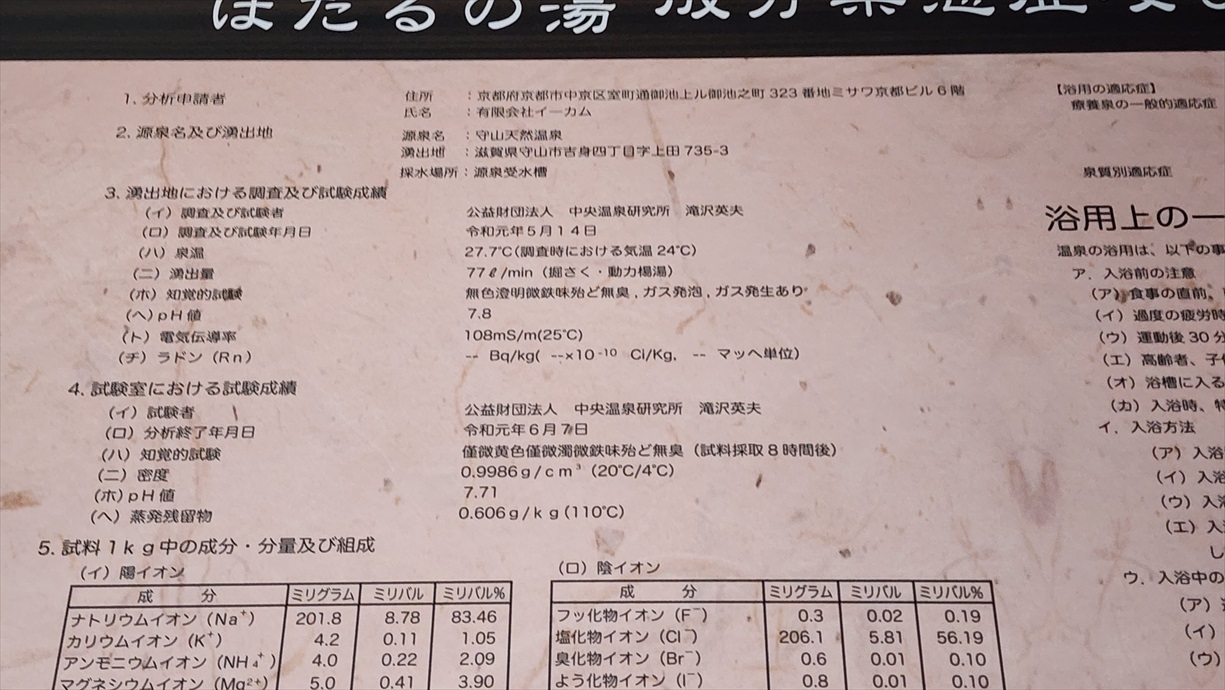 ほたるの湯
1. 分析申請者 住所 : 京都府京都市中京区室町通御池上ル御池之町 323 番地ミサワ京都ビル 6 階
氏名 : 有限会社イーカム
2. 源泉名及び湧出地 源泉名 : 守山天然温泉
湧出地 : 滋賀県守山市吉身四丁目字上田 735-3
採水場所 : 源泉受水槽
3. 湧出地における調査及び試験成績
(イ) 調査及び試験者 公益財団法人 中央温泉研究所 滝沢英夫
(ロ) 調査及び試験年月日 令和元年5月14日
(ハ) 泉温 27.7℃(調査時における気温 24℃)
(ニ) 湧出量 77ℓ/min (掘さく・動力楊湯)
(ホ) 知覚的試験 無色澄明微鉄味殆ど無臭 , ガス発泡 , ガス発生あり
(ヘ) pH値 7.8
(ト) 電気伝導率 108mS/m(25℃)
(チ) ラドン (Rn) -- Bq/kg( --×10⁻¹⁰ Ci/Kg, -- マッヘ単位)
4. 試験室における試験成績
(イ) 試験者 公益財団法人 中央温泉研究所 滝沢英夫
(ロ) 分析終了年月日 令和元年6月7日
(ハ) 知覚的試験 僅微黄色僅微濁微鉄味殆ど無臭 (試料採取8時間後)
(ニ) 密度 0.9986g/cm³ (20℃/4℃)
(ホ) pH値 7.71
(ヘ) 蒸発残留物 0.606g/kg (110℃)
5. 試料1kg中の成分・分量及び組成
(イ) 陽イオン
成 分 ミリグラム ミリバル ミリバル%
ナトリウムイオン (Na⁺) 201.8 8.78 83.46
カリウムイオン (K⁺) 4.2 0.11 1.05
アンモニウムイオン (NH₄⁺) 4.0 0.22 2.09
マグネシウムイオン (Mg²⁺) 5.0 0.41 3.90
(ロ) 陰イオン
成 分 ミリグラム ミリバル ミリバル%
フッ化物イオン (F⁻) 0.3 0.02 0.19
塩化物イオン (Cl⁻) 206.1 5.81 56.19
臭化物イオン (Br⁻) 0.6 0.01 0.10
よう化物イオン (I⁻) 0.8 0.01 0.10
【浴用の適応症】
療養泉の一般的適応症
泉質別適応症
浴用上の一
温泉の浴用は、以下の事
ア. 入浴前の注意
(ア) 食事の直前、
(イ) 過度の疲労時
(ウ) 運動後30分
(エ) 高齢者、子
(オ) 浴槽に入る
(カ) 入浴時、特
イ. 入浴方法
(ア) 入浴
(イ) 入浴
(ウ) 入浴
(エ) 入
し
ウ. 入浴中の
(ア)
(イ)
(ウ)